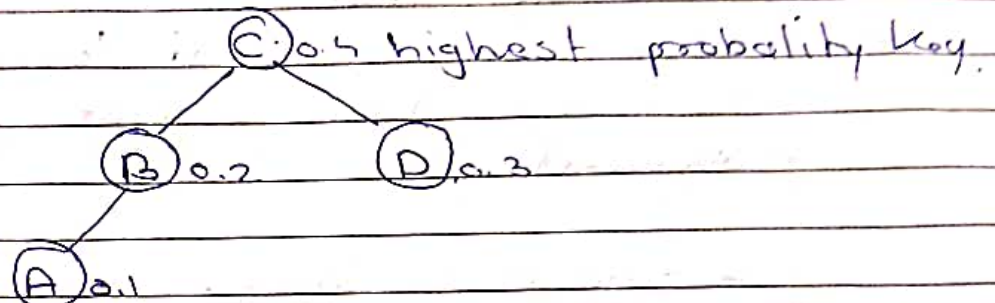 C 0.4 highest probality key.
B 0.2 D 0.3
A 0.1